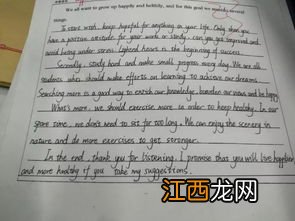 We all want to grow up happily and healthily, and for this goal we
things.
To start with, keep hopeful for anything in your life. Only when you
have a positive attitude for your work or study, can you get improved and
avoid being under stress. Light-hearted hearts is the beginning of success.
Seriously, study hard and make small progress every day. We are all
students who should make efforts on learning to achieve our dreams.
Searching more is a good way to enrich our knowledge, broaden our views and be happy.
What's more, we should exercise more in order to keep healthy. In our
spare time, we don't need to sit for too long. We can enjoy the scenery in
nature and do more exercises to get stronger.
In the end, thank you for listening. I promise that you will live happier
and more healthy if you take my suggestions.
江西龙网